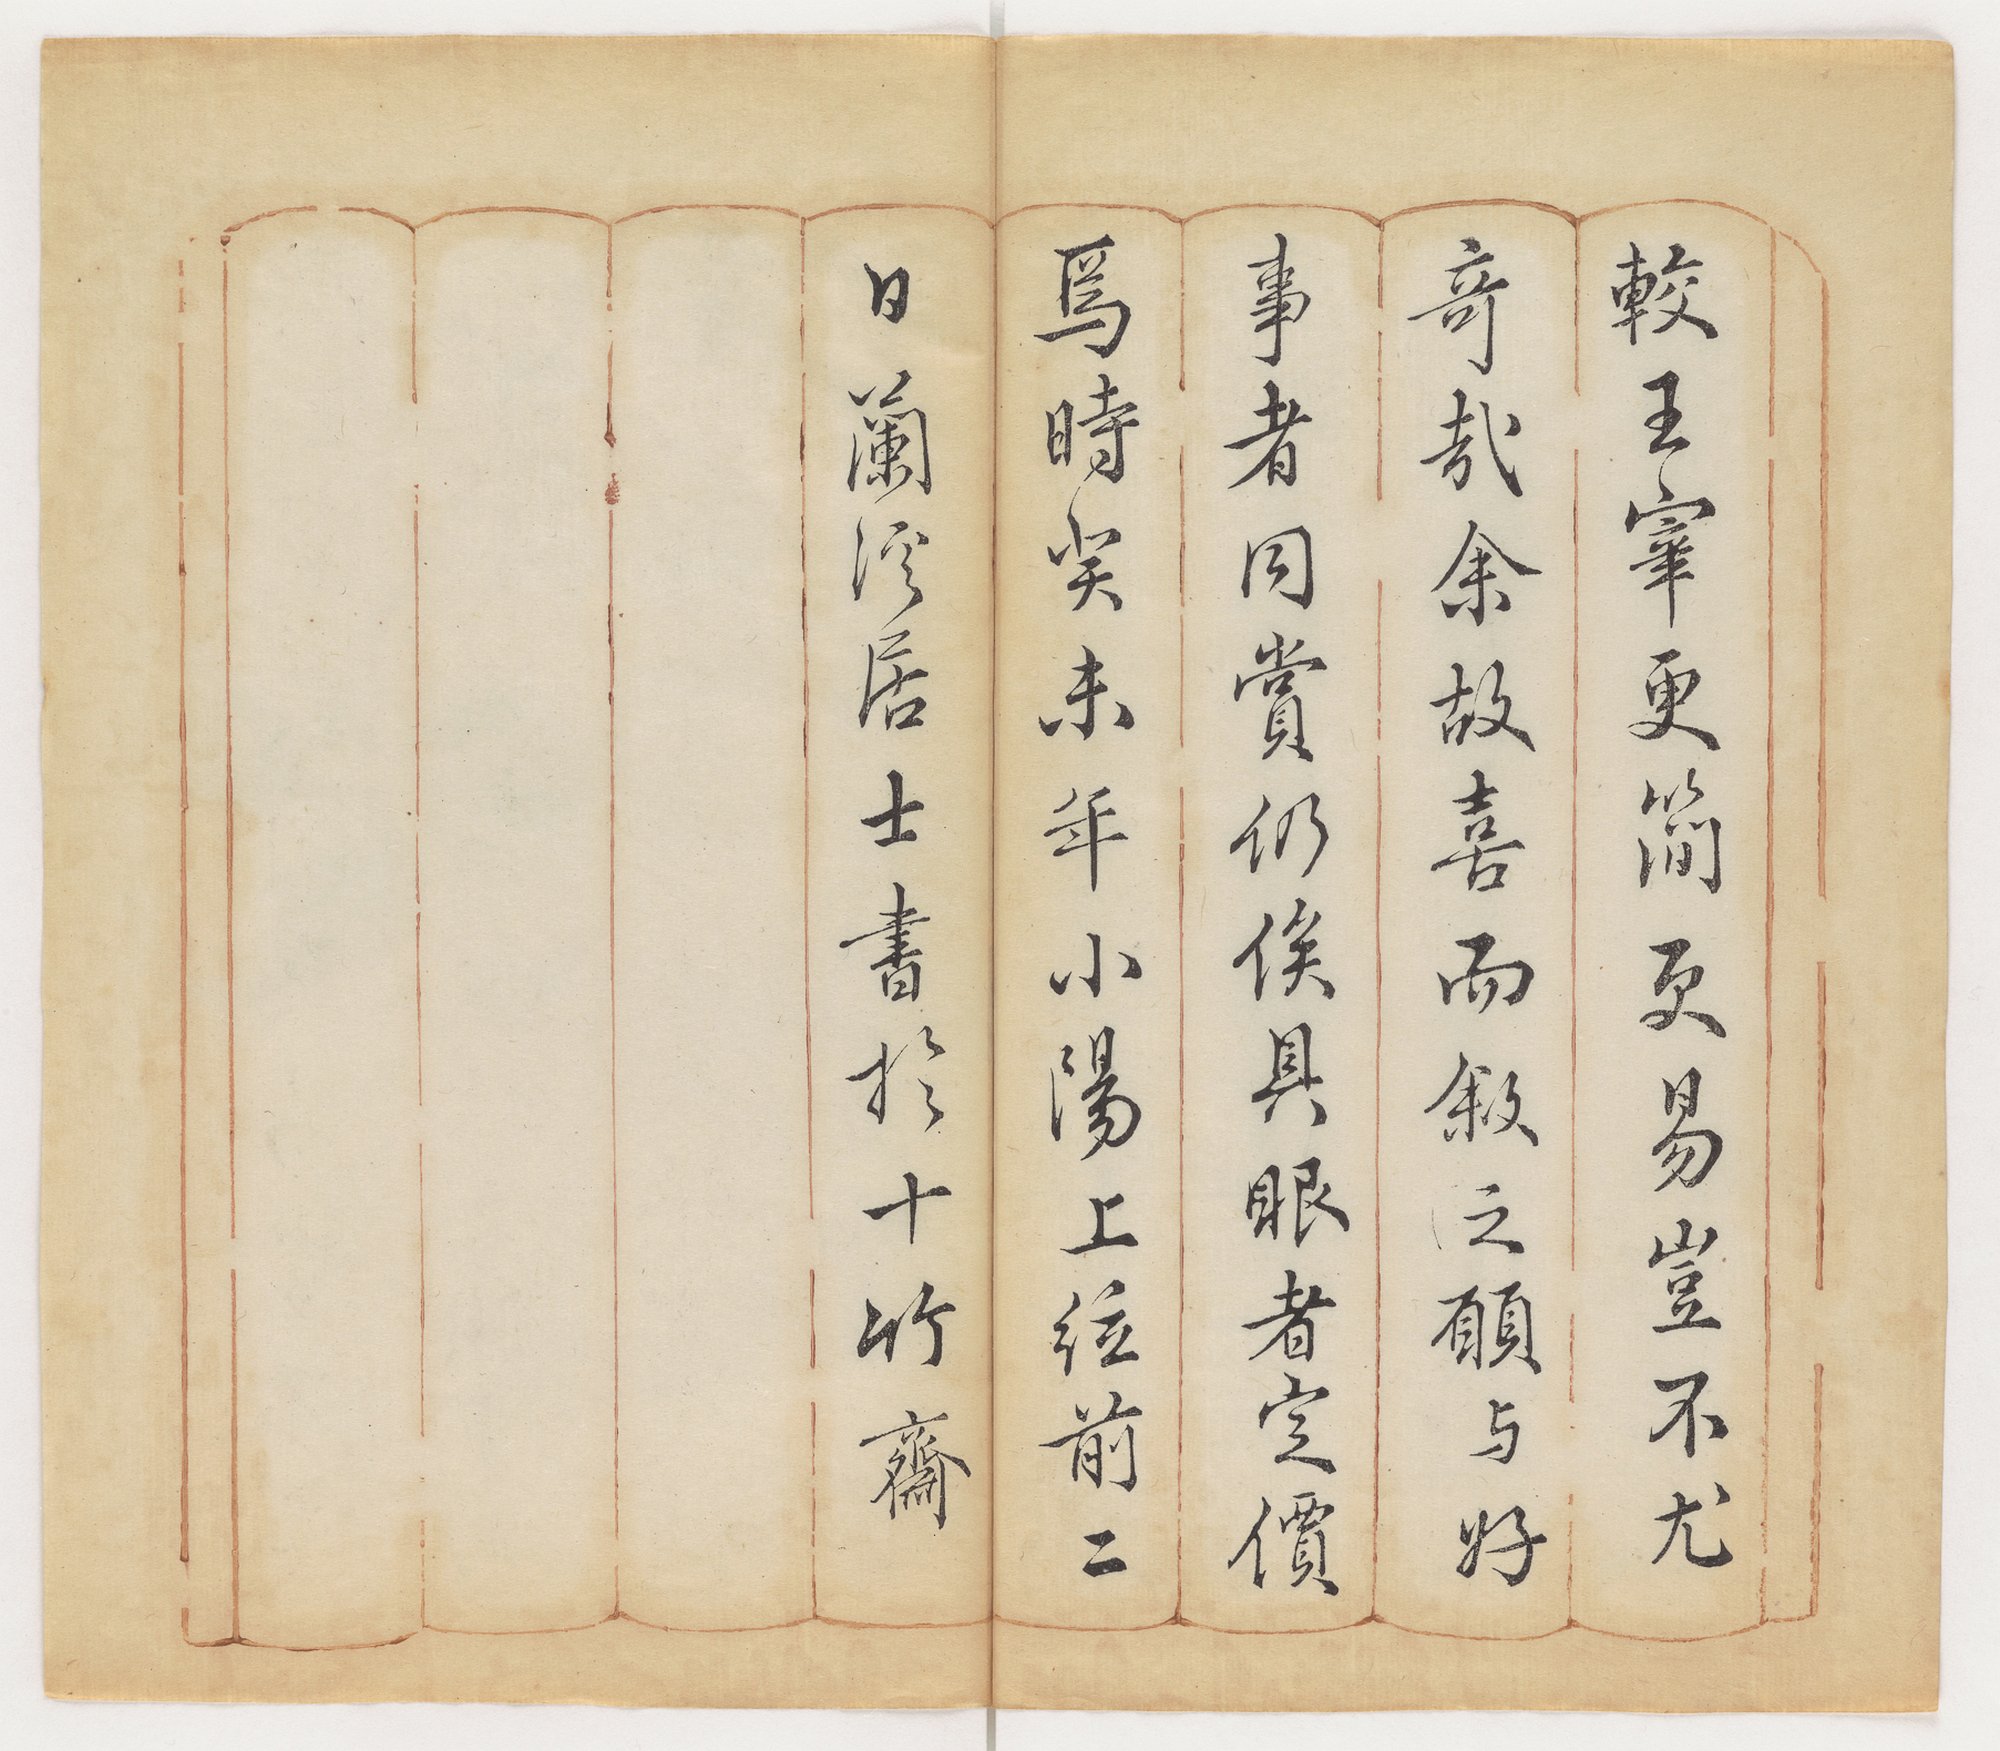 較王宰更簡更易豈不尤
奇哉余故喜而敘之願与好
事者同賞仍俟具眼者定價
焉時癸未年小陽上絃前二
日蘭溪居士書於十竹齋